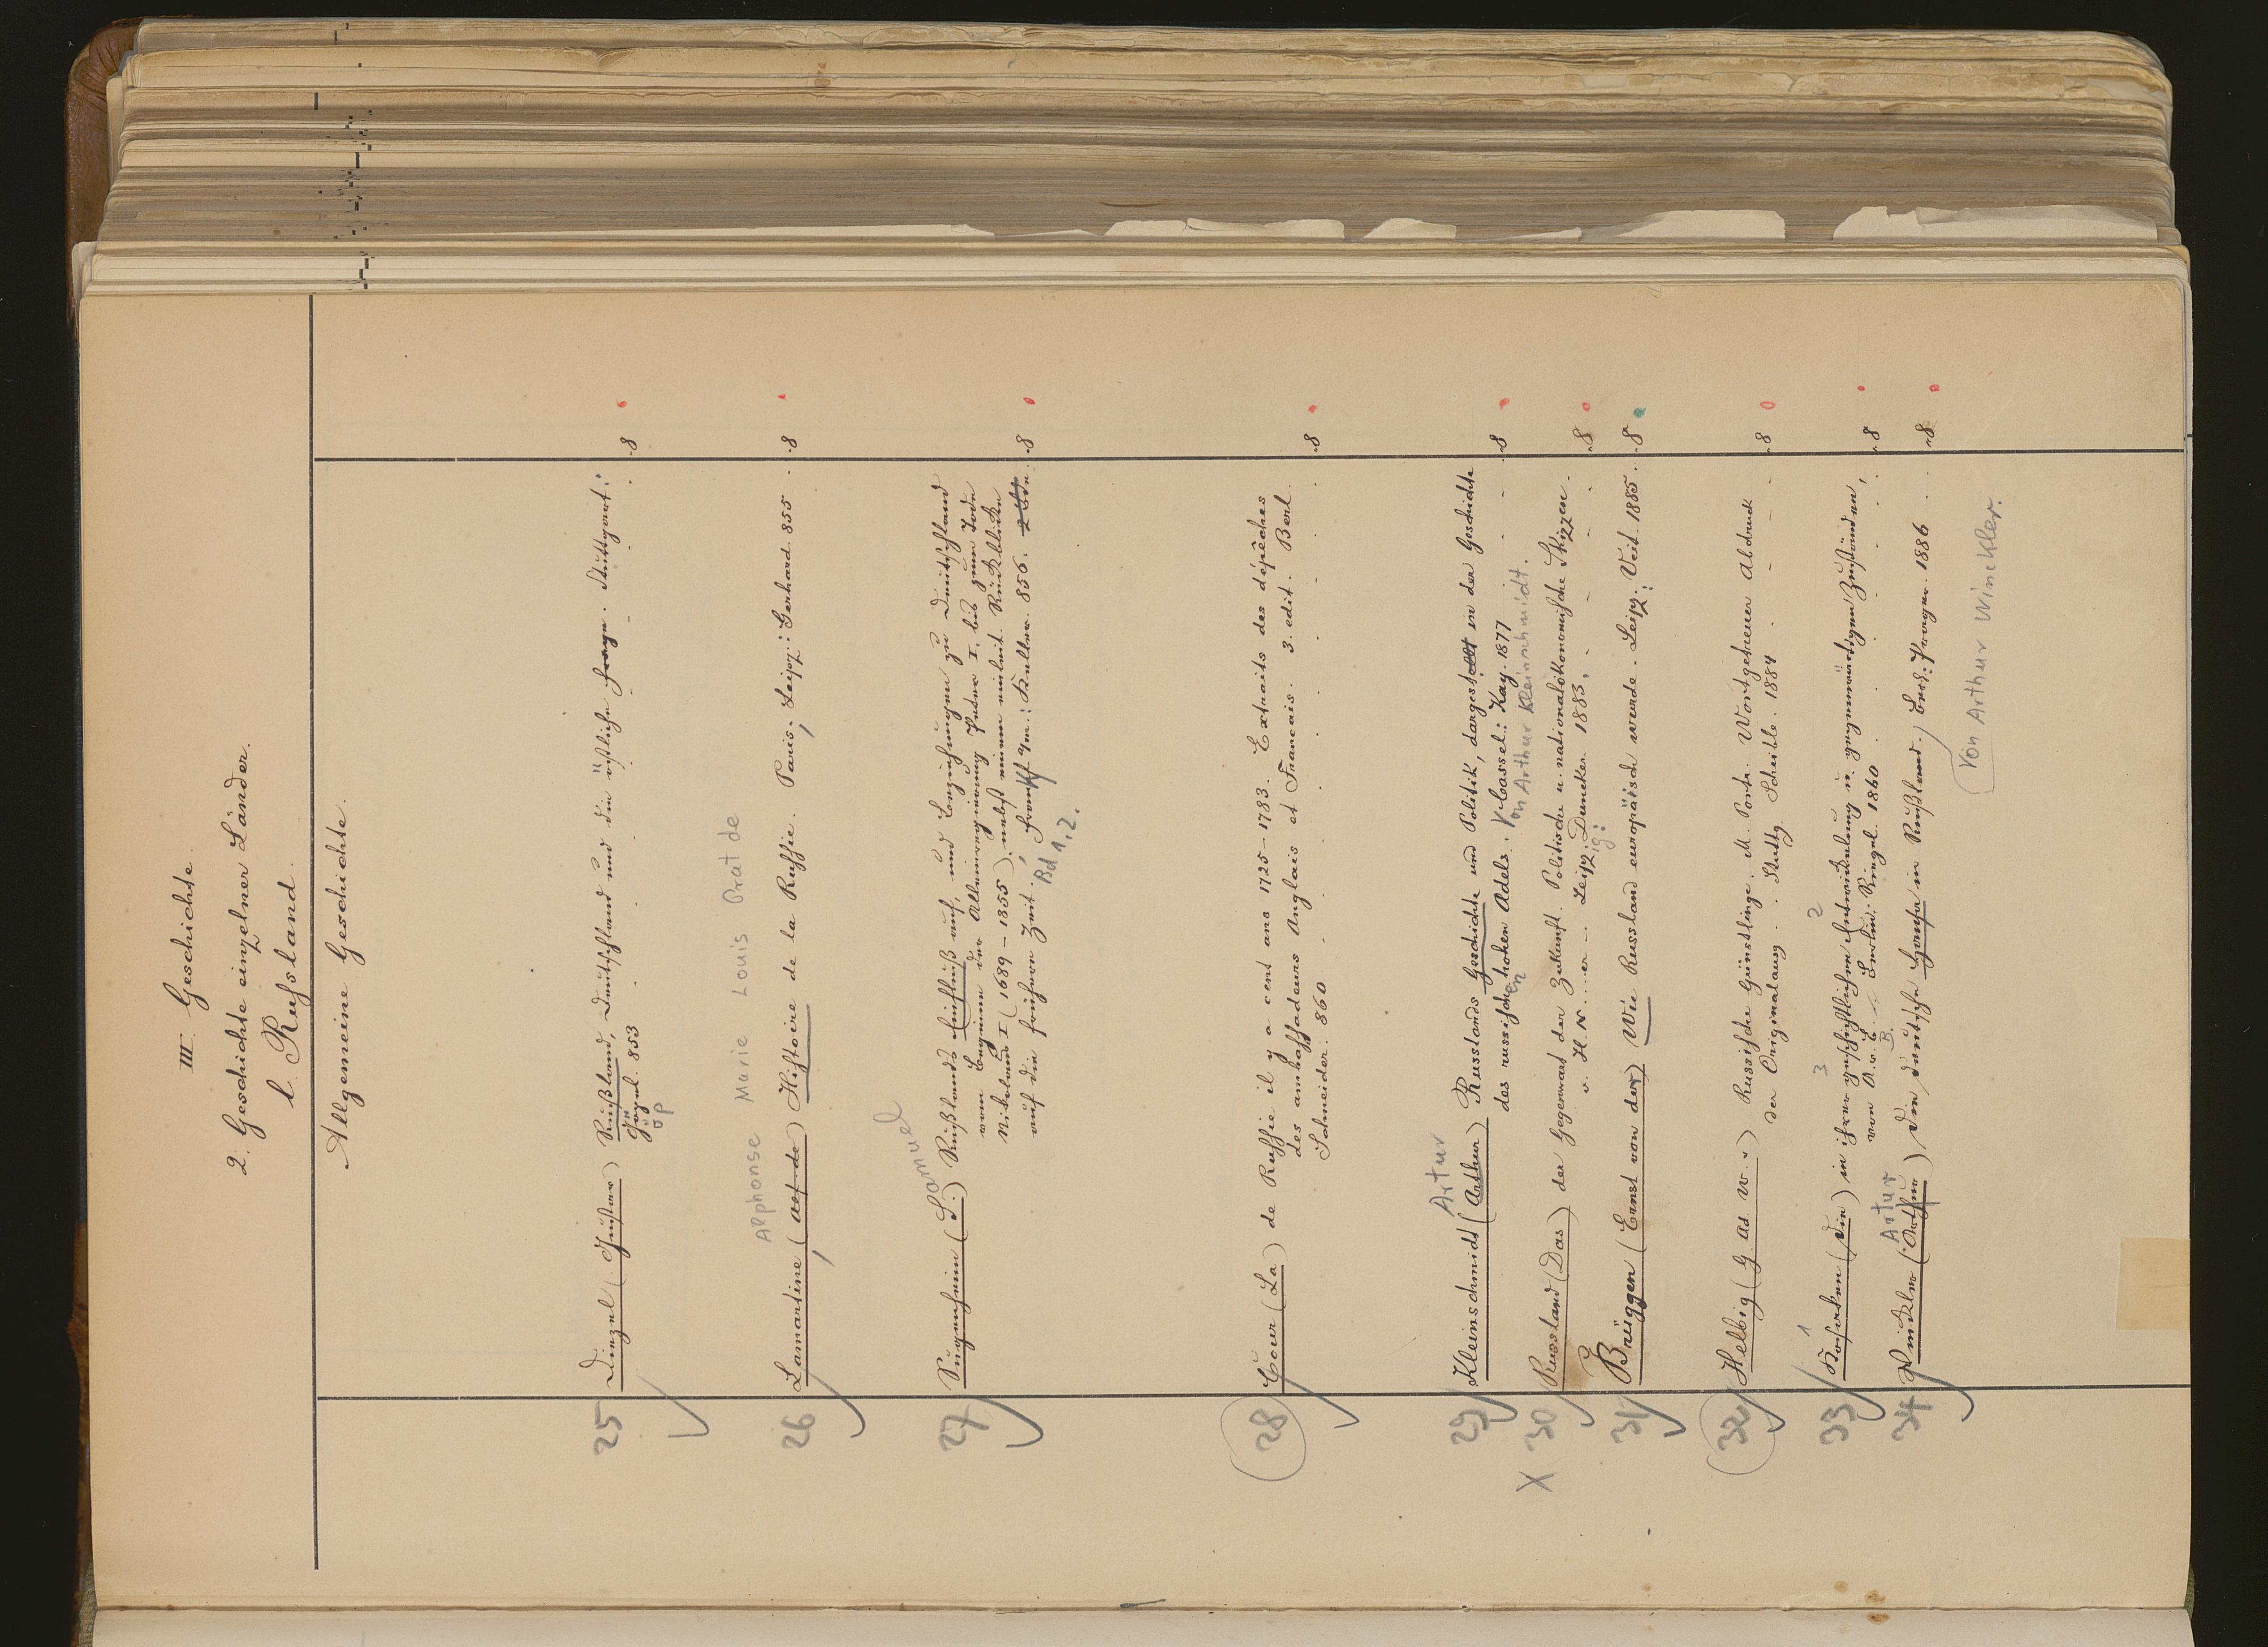 III. Geschichte.
2. Geschichte einzelner Länder.
l. Rußland.
Allgemeine Geschichte.
25 Diezel (Gustav) Rußland, Deutschland und die östliche Frage. Stuttgart:
Göpel. 853 . . . . 8
öp
Alphonse Marie Louis Prat de
26 Lamartine, (A. de) Histoire de la Russie. Paris, Leipz: Gerhard. 855 . . 8
Samuel
27 Sugenheim (S.) Rußlands Einfluß auf, und Beziehungen zu Deutschland
vom Beginne der Alleinregierung Peters I. bis zum Tode
Nikolaus I (1689-1855), nebst einem einleit. Rückblicke
auf die frühere Zeit. Frankf a/m: Keller. 856. 2 Bde. . 8
Bd 1, 2.
28 Cour (La) de Russie il y a cent ans 1725-1783. Extraits des dépêches
des ambassadeurs Anglais et Francais. 3. edit. Berl.
Schneider: 860 . . . . . . 8
Artur
29 Kleinschmidt (Arthur) Russlands Geschichte und Politik, dargestellt in der Geschichte
des russischen hohen Adels. Cassel: Kay. 1877 . . . 8
en
Von Arthur Kleinschmidt.
X 30 Russland (Das) der Gegenwart der Zukunft. Politische u. nationalökonomische Skizzen.
v. H. N.....er . . Leipz: Duncker. 1883. . . . . 8
ig:
31 Brüggen (Ernst von der) Wie Russland europäisch wurde. Leipz: Veit. 1885. . 8
32 Helbig (G. Ad. W. v.) Russische Günstlinge. M. Portr. Wortgetreuer Abdruck
der Originalausg. . Stuttg. Scheible. 1884 . . . . 8
1 3 2
33 Kosaken (Die) in ihrer geschichtlichen Entwickelung u. gegenwärtigen Zuständen,
von A. v. B. . . Berlin: Riegel. 1860 . . . . 8
B.
Artur
34 Winckler (Arthur), Die Deutsche Hansa in Rußland, Berl: Prager. 1886 . . 8
Von Arthur Winckler.